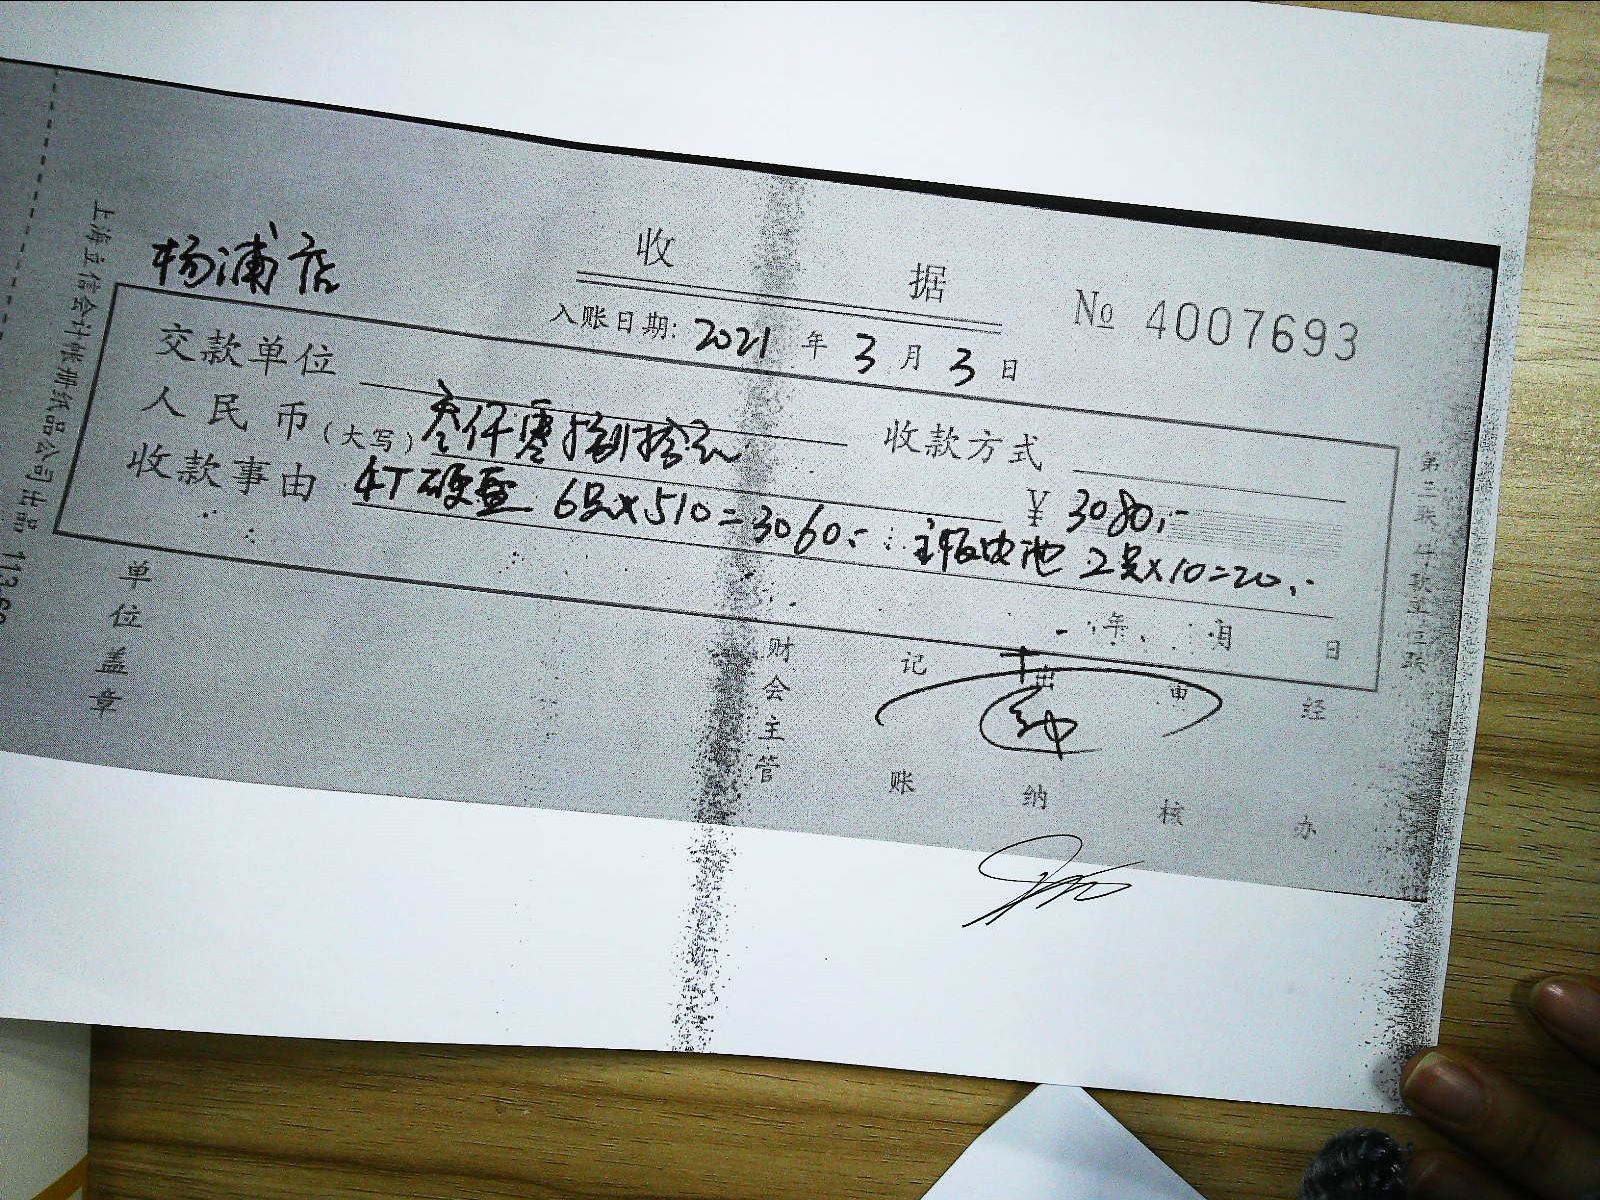 收 据
杨浦店
№ 4007693
入账日期: 2021 年 3 月 3 日
交款单位 收款方式
人民币(大写) 叁仟零捌拾元 ¥ 3080.-
收款事由 4T硬盘 6只×510=3060.- 主板电池 2只×10=20.-
年 月 日
单位盖章 财会主管 记账 出纳 审核 经办
上海立信会计账册纸品公司出品